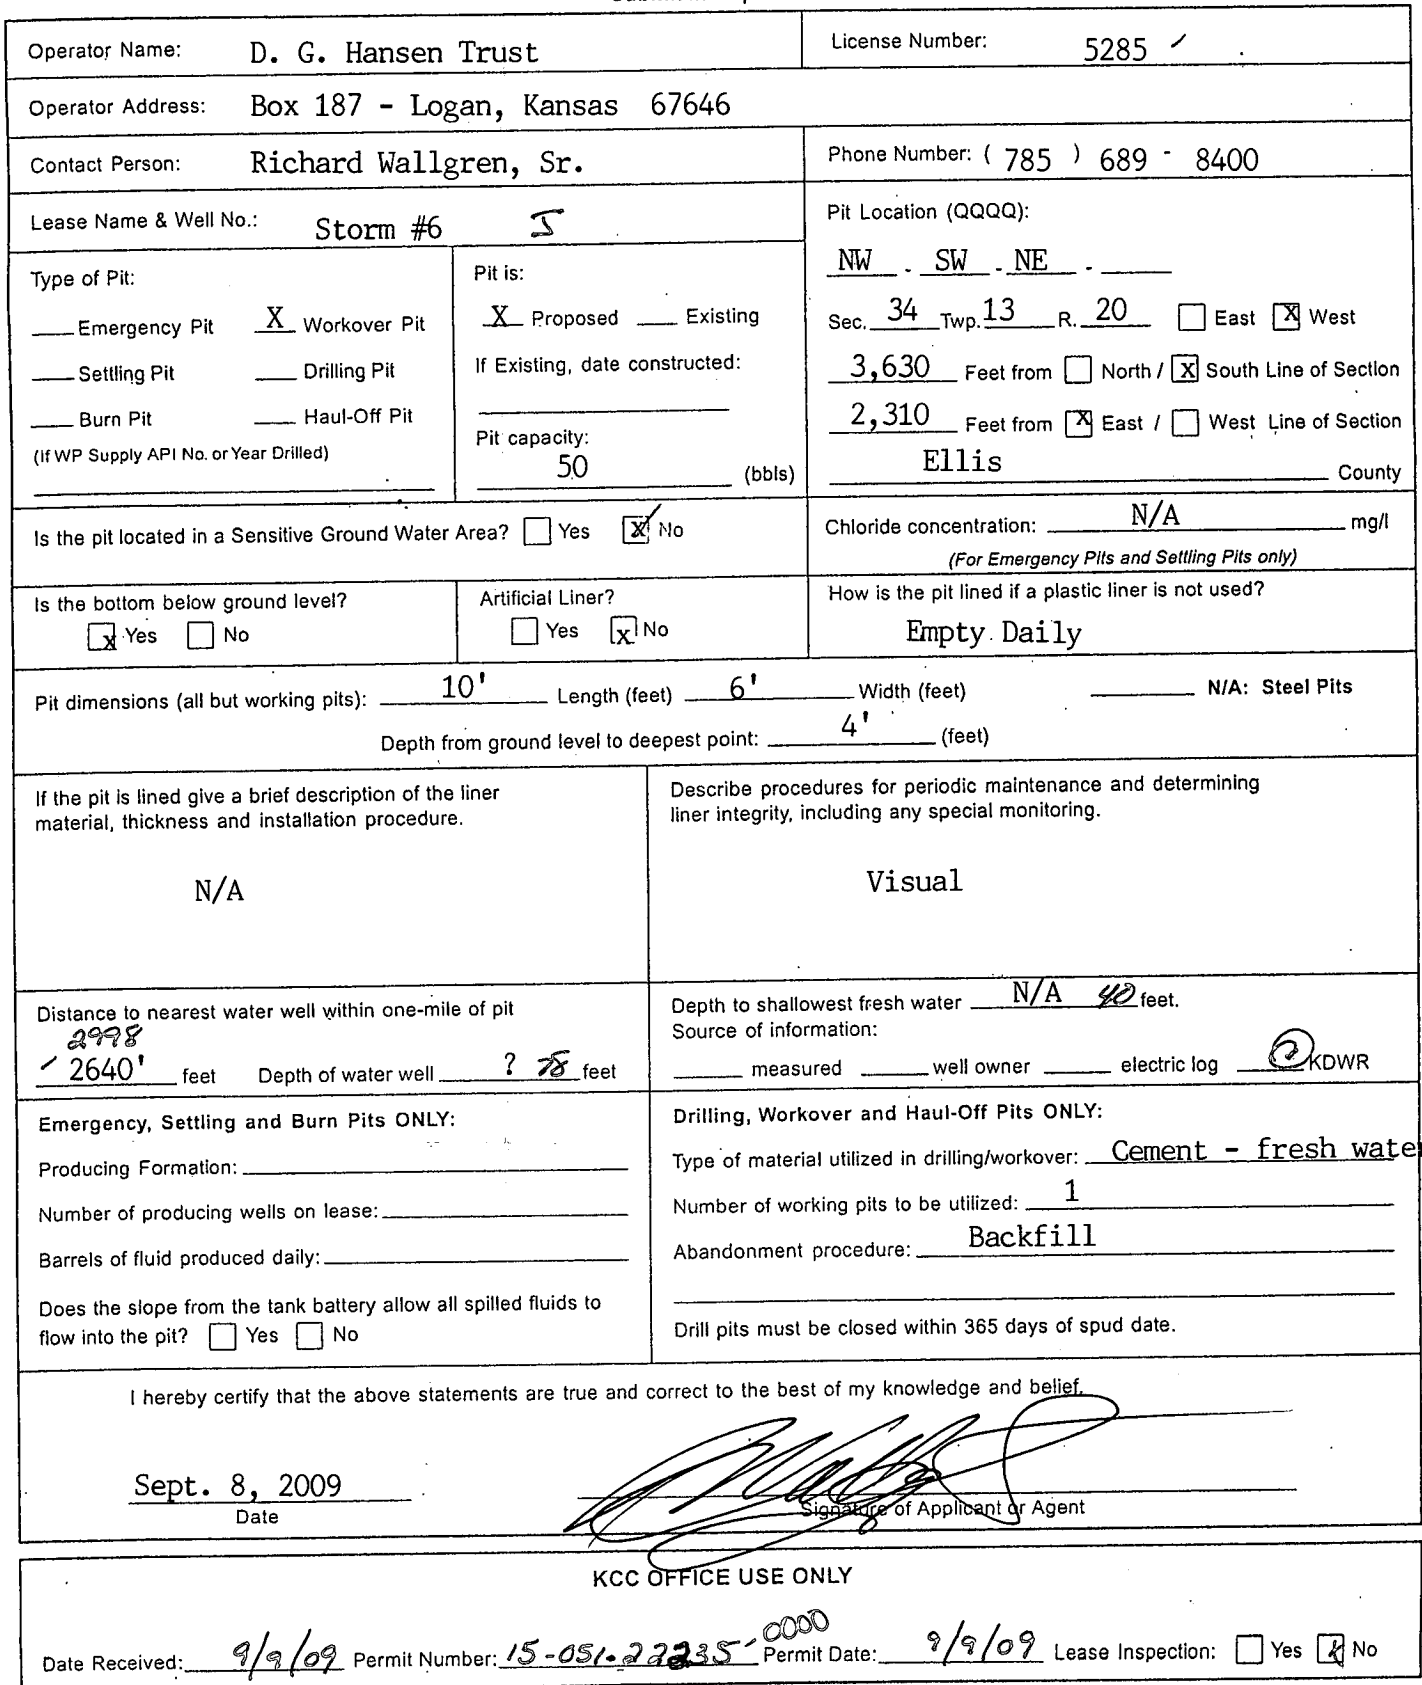 Operator Name: D. G. Hansen Trust
License Number: 5285
Operator Address: Box 187 - Logan, Kansas 67646
Contact Person: Richard Wallgren, Sr.
Phone Number: ( 785 ) 689 - 8400
Lease Name & Well No.: Storm #6
Pit Location (QQQQ):
NW - SW - NE -
Sec. 34 Twp. 13 R. 20 East X West
3,630 Feet from North / X South Line of Section
2,310 Feet from X East / West Line of Section
Ellis County
Type of Pit:
Emergency Pit X Workover Pit
Settling Pit Drilling Pit
Burn Pit Haul-Off Pit
(If WP Supply API No. or Year Drilled)
Pit is:
X Proposed Existing
If Existing, date constructed:
Pit capacity:
50 (bbls)
Is the pit located in a Sensitive Ground Water Area? Yes X No
Chloride concentration: N/A mg/l
(For Emergency Pits and Settling Pits only)
Is the bottom below ground level?
x Yes No
Artificial Liner?
Yes x No
How is the pit lined if a plastic liner is not used?
Empty Daily
Pit dimensions (all but working pits): 10' Length (feet) 6' Width (feet) N/A: Steel Pits
Depth from ground level to deepest point: 4' (feet)
If the pit is lined give a brief description of the liner
material, thickness and installation procedure.
N/A
Describe procedures for periodic maintenance and determining
liner integrity, including any special monitoring.
Visual
Distance to nearest water well within one-mile of pit
2998
2640' feet Depth of water well ? feet
Depth to shallowest fresh water N/A 40 feet.
Source of information:
measured well owner electric log KDWR
Emergency, Settling and Burn Pits ONLY:
Producing Formation:
Number of producing wells on lease:
Barrels of fluid produced daily:
Does the slope from the tank battery allow all spilled fluids to
flow into the pit? Yes No
Drilling, Workover and Haul-Off Pits ONLY:
Type of material utilized in drilling/workover: Cement - fresh wate
Number of working pits to be utilized: 1
Abandonment procedure: Backfill
Drill pits must be closed within 365 days of spud date.
I hereby certify that the above statements are true and correct to the best of my knowledge and belief.
Sept. 8, 2009
Date
Signature of Applicant or Agent
KCC OFFICE USE ONLY
Date Received: 9/9/09 Permit Number: 15-051-22235 0000 Permit Date: 9/9/09 Lease Inspection: Yes X No